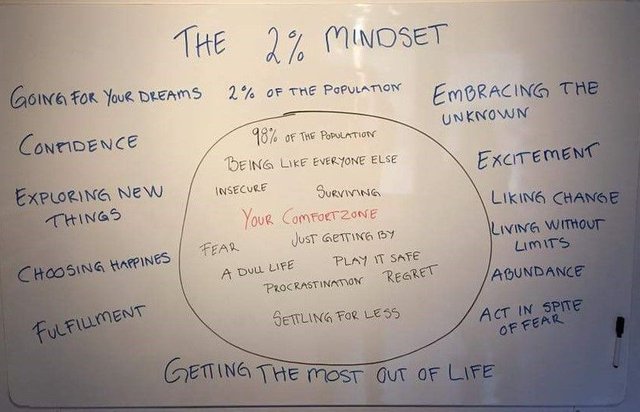 THE 2% MINDSET
GOING FOR YOUR DREAMS
2% OF THE POPULATION
EMBRACING THE
UNKNOWN
CONFIDENCE
98% OF THE POPULATION
BEING LIKE EVERYONE ELSE
EXCITEMENT
EXPLORING NEW
THINGS
INSECURE
SURVIVING
LIKING CHANGE
YOUR COMFORTZONE
LIVING WITHOUT
LIMITS
FEAR
JUST GETTING BY
CHOOSING HAPPINES
A DULL LIFE
PLAY IT SAFE
ABUNDANCE
PROCRASTINATION
REGRET
FULFILLMENT
SETTLING FOR LESS
ACT IN SPITE
OF FEAR
GETTING THE MOST OUT OF LIFE